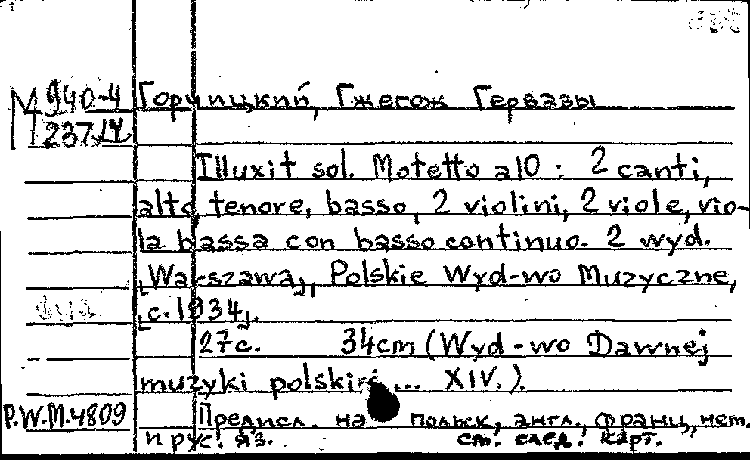 М 940-4
1237/14
Горчицкий, Гжегож Гервазы
Illuxit sol. Motetto a10 : 2 canti,
alto, tenore, basso, 2 violini, 2 viole, vio-
la bassa con basso continuo. 2 wyd.
[Warszawa], Polskie Wyd-wo Muzyczne,
[c.1934].
27с. 34cm (Wyd-wo Dawnej
muzyki polskiej ... XIV.).
P.W.M.4809
Предисл. на польск, англ., франц, нем.
и рус. яз. см. след. карт.